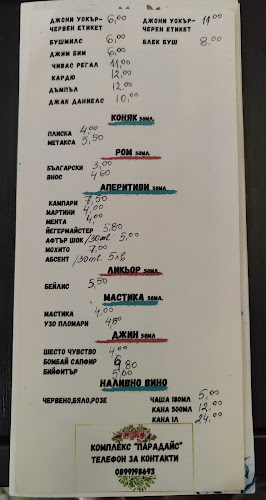 ДЖОНИ УОКЪР- 6,00
ЧЕРВЕН ЕТИКЕТ
ДЖОНИ УОКЪР- 11,00
ЧЕРЕН ЕТИКЕТ
БУШМИЛС 6,00
БЛЕК БУШ 8,00
ДЖИМ БИМ 6,00
ЧИВАС РЕГАЛ 11,00
КАРДЮ 12,00
ДЪМПЪЛ 12,00
ДЖАК ДАНИЕЛС 10,00
КОНЯК 50МЛ.
ПЛИСКА 4,00
МЕТАКСА 5,50
РОМ 50МЛ.
БЪЛГАРСКИ 3,00
ВНОС 4,60
АПЕРИТИВИ 50МЛ.
КАМПАРИ 7,50
МАРТИНИ 4,00
МЕНТА 4,00
ЙЕГЕРМАЙСТЕР 5,80
АФТЪР ШОК /30ml 5,00
МОХИТО 7,00
АБСЕНТ /30ml
ЛИКЬОР 50МЛ.
БЕЙЛИС 5,50
МАСТИКА 50МЛ.
МАСТИКА 4,00
УЗО ПЛОМАРИ
ДЖИН 50МЛ.
ШЕСТО ЧУВСТВО 4,00
БОМБАЙ САПФИР 6,80
БИЙФИТЪР 5,00
НАЛИВНО ВИНО
ЧЕРВЕНО,БЯЛО,РОЗЕ
ЧАША 180МЛ 5,00
КАНА 500МЛ 12,00
КАНА 1Л 24,00
КОМПЛЕКС "ПАРАДАЙС"
ТЕЛЕФОН ЗА КОНТАКТИ
0899198693